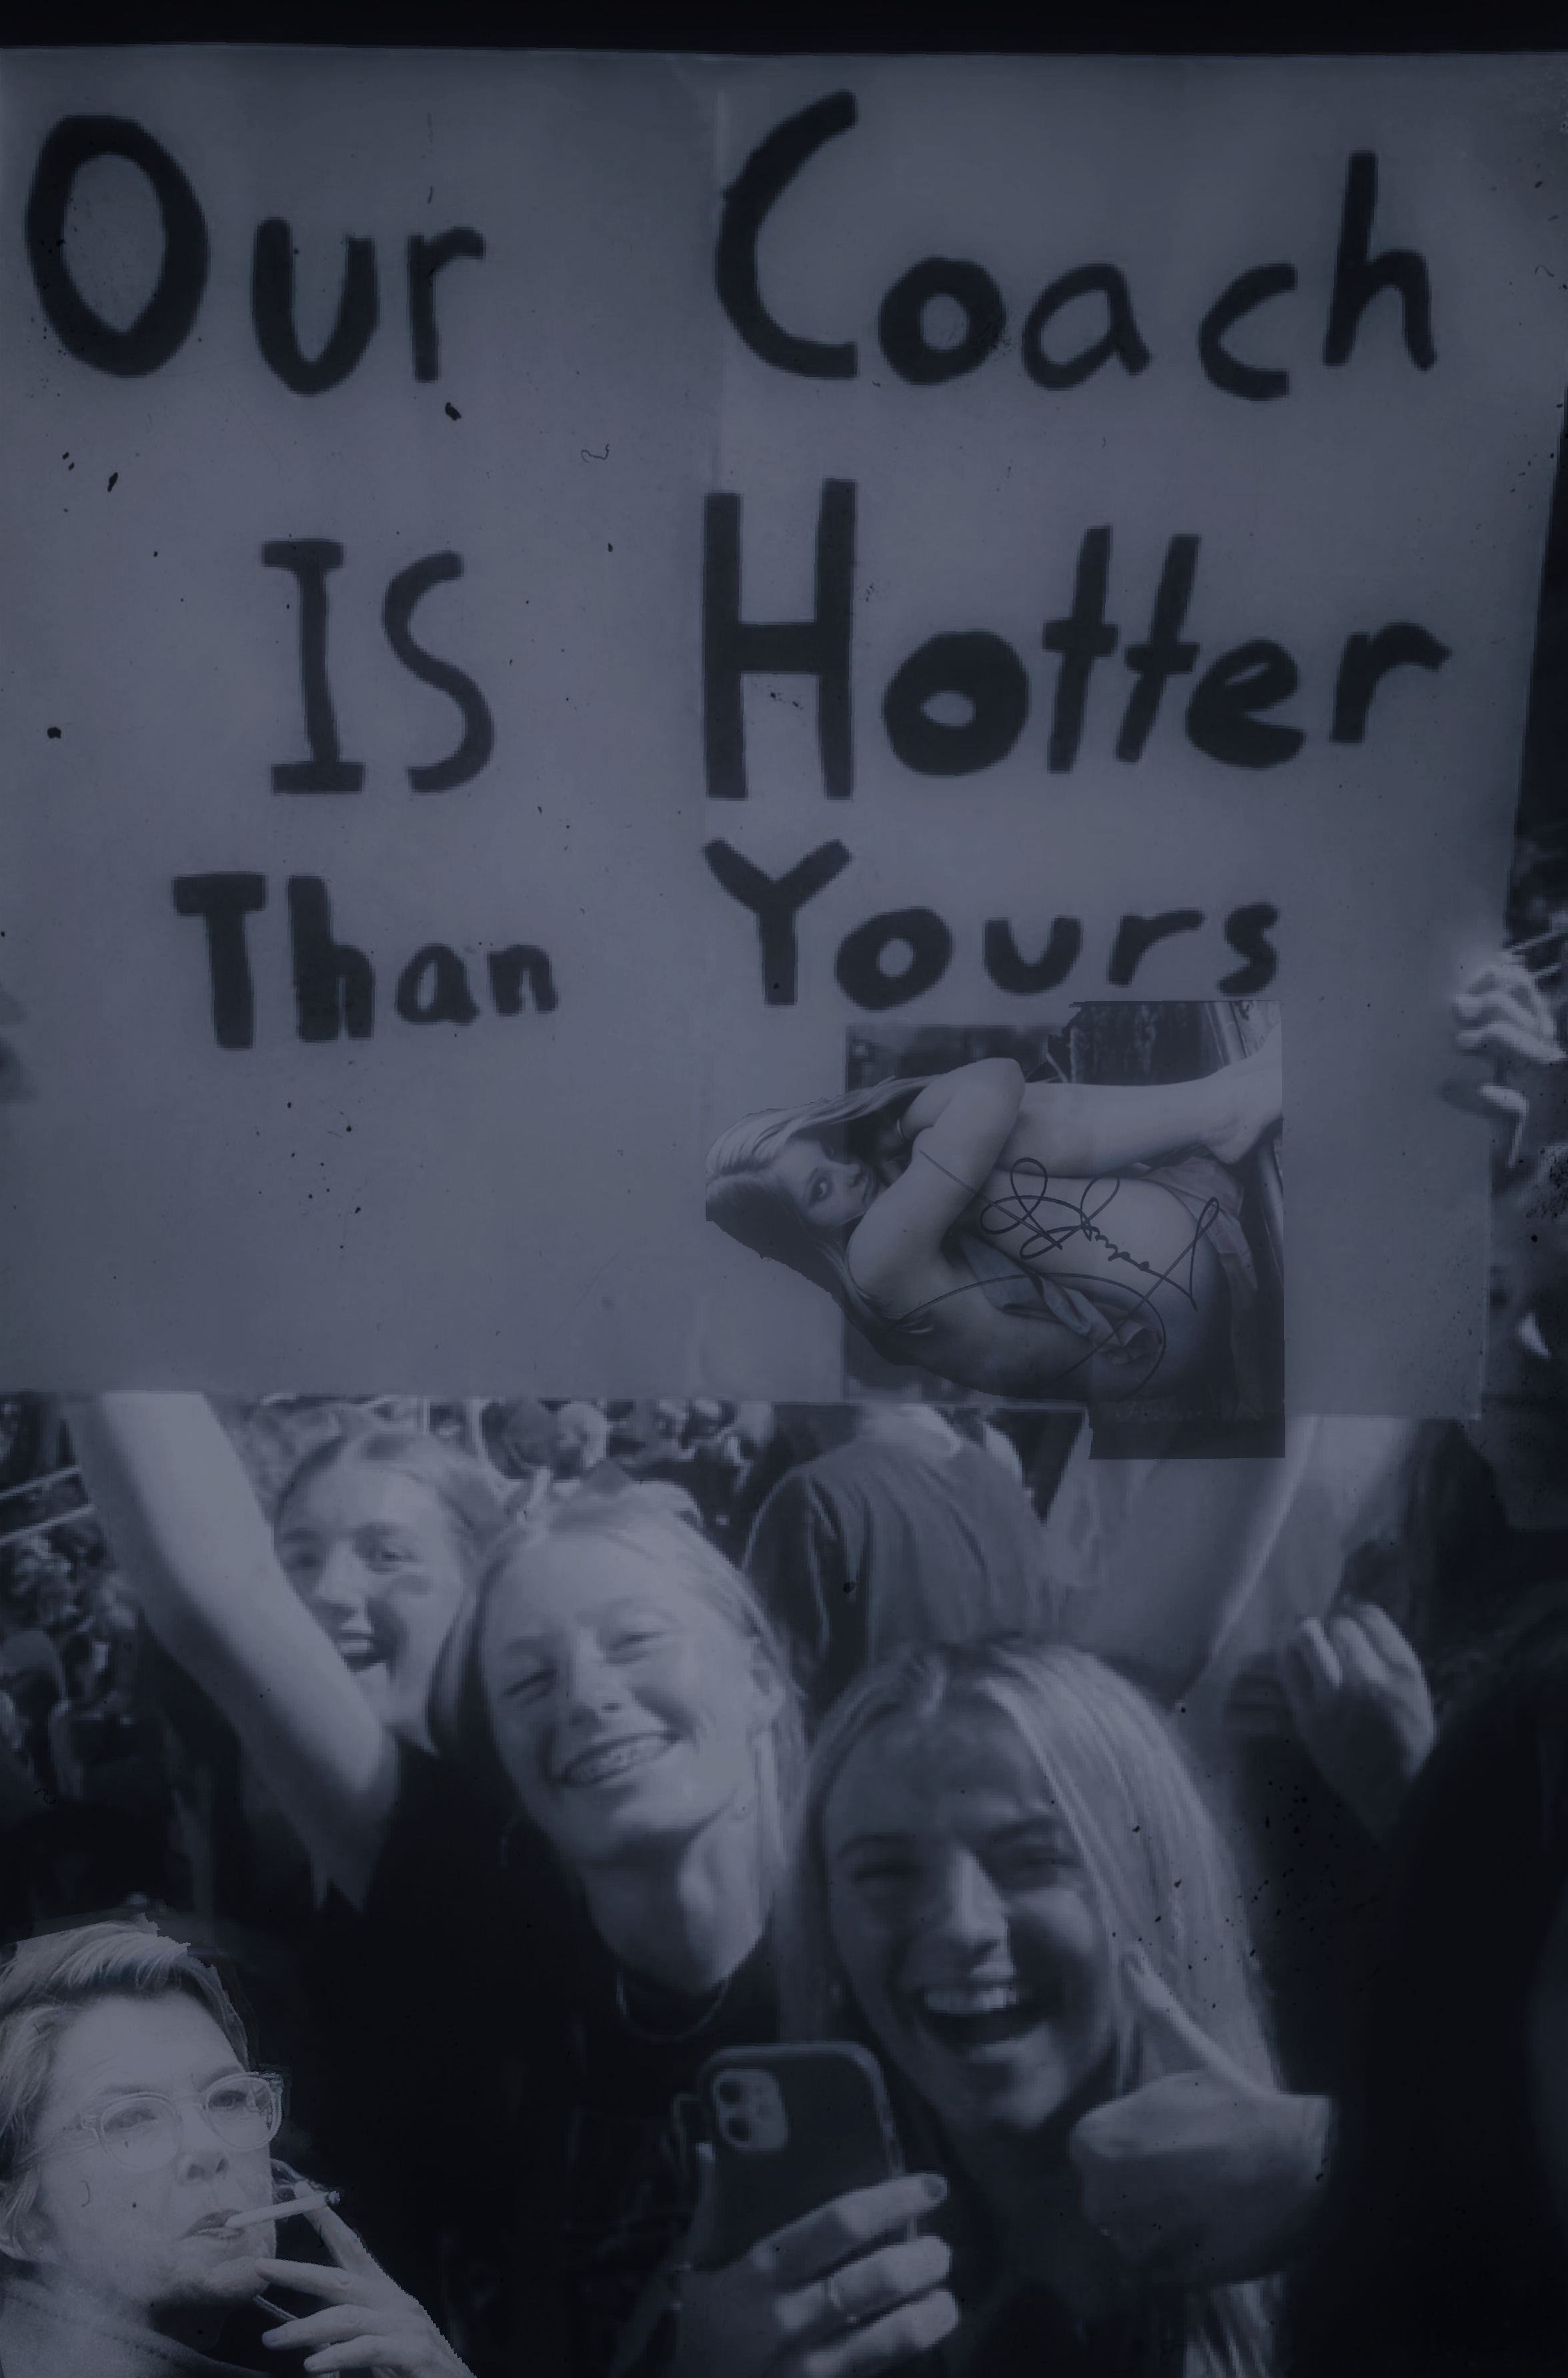 Our Coach
IS Hotter
Than Yours